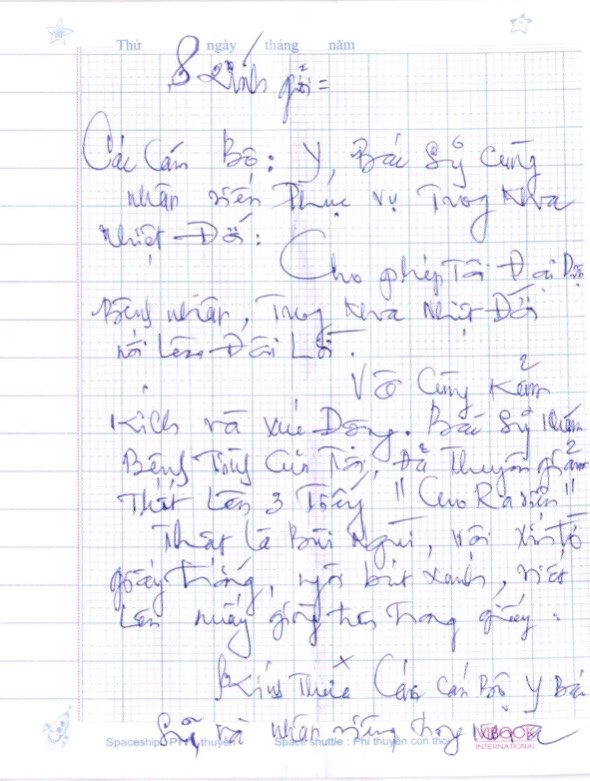 Thứ ngày tháng năm
Kính gửi =
Các Cán Bộ: Y, Bác Sỹ Cùng
nhân viên Phục vụ Trong Khoa
Nhiệt Đới:
Cho phép Tôi Đại Diện
Bệnh nhân, Trong Khoa Nhiệt Đới
nói Lên Đôi Lời.
Vô Cùng Kảm
Kích và xúc Động. Bác Sỹ Khám
Bệnh Cho Tôi, Đã Thuyên giảm
Thốt Lên 3 Tiếng "Cho Ra viện"
Thật là Bùi Ngùi, với xin tờ
giấy trắng, ngòi bút xanh, viết
Lên mấy giòng trên trang giấy:
Kính Thưa Các Cán Bộ Y Bác
Sỹ và nhân viên trong khoa
Spaceship : Phi thuyền Space shuttle : Phi thuyền con thoi
INTERNATIONAL